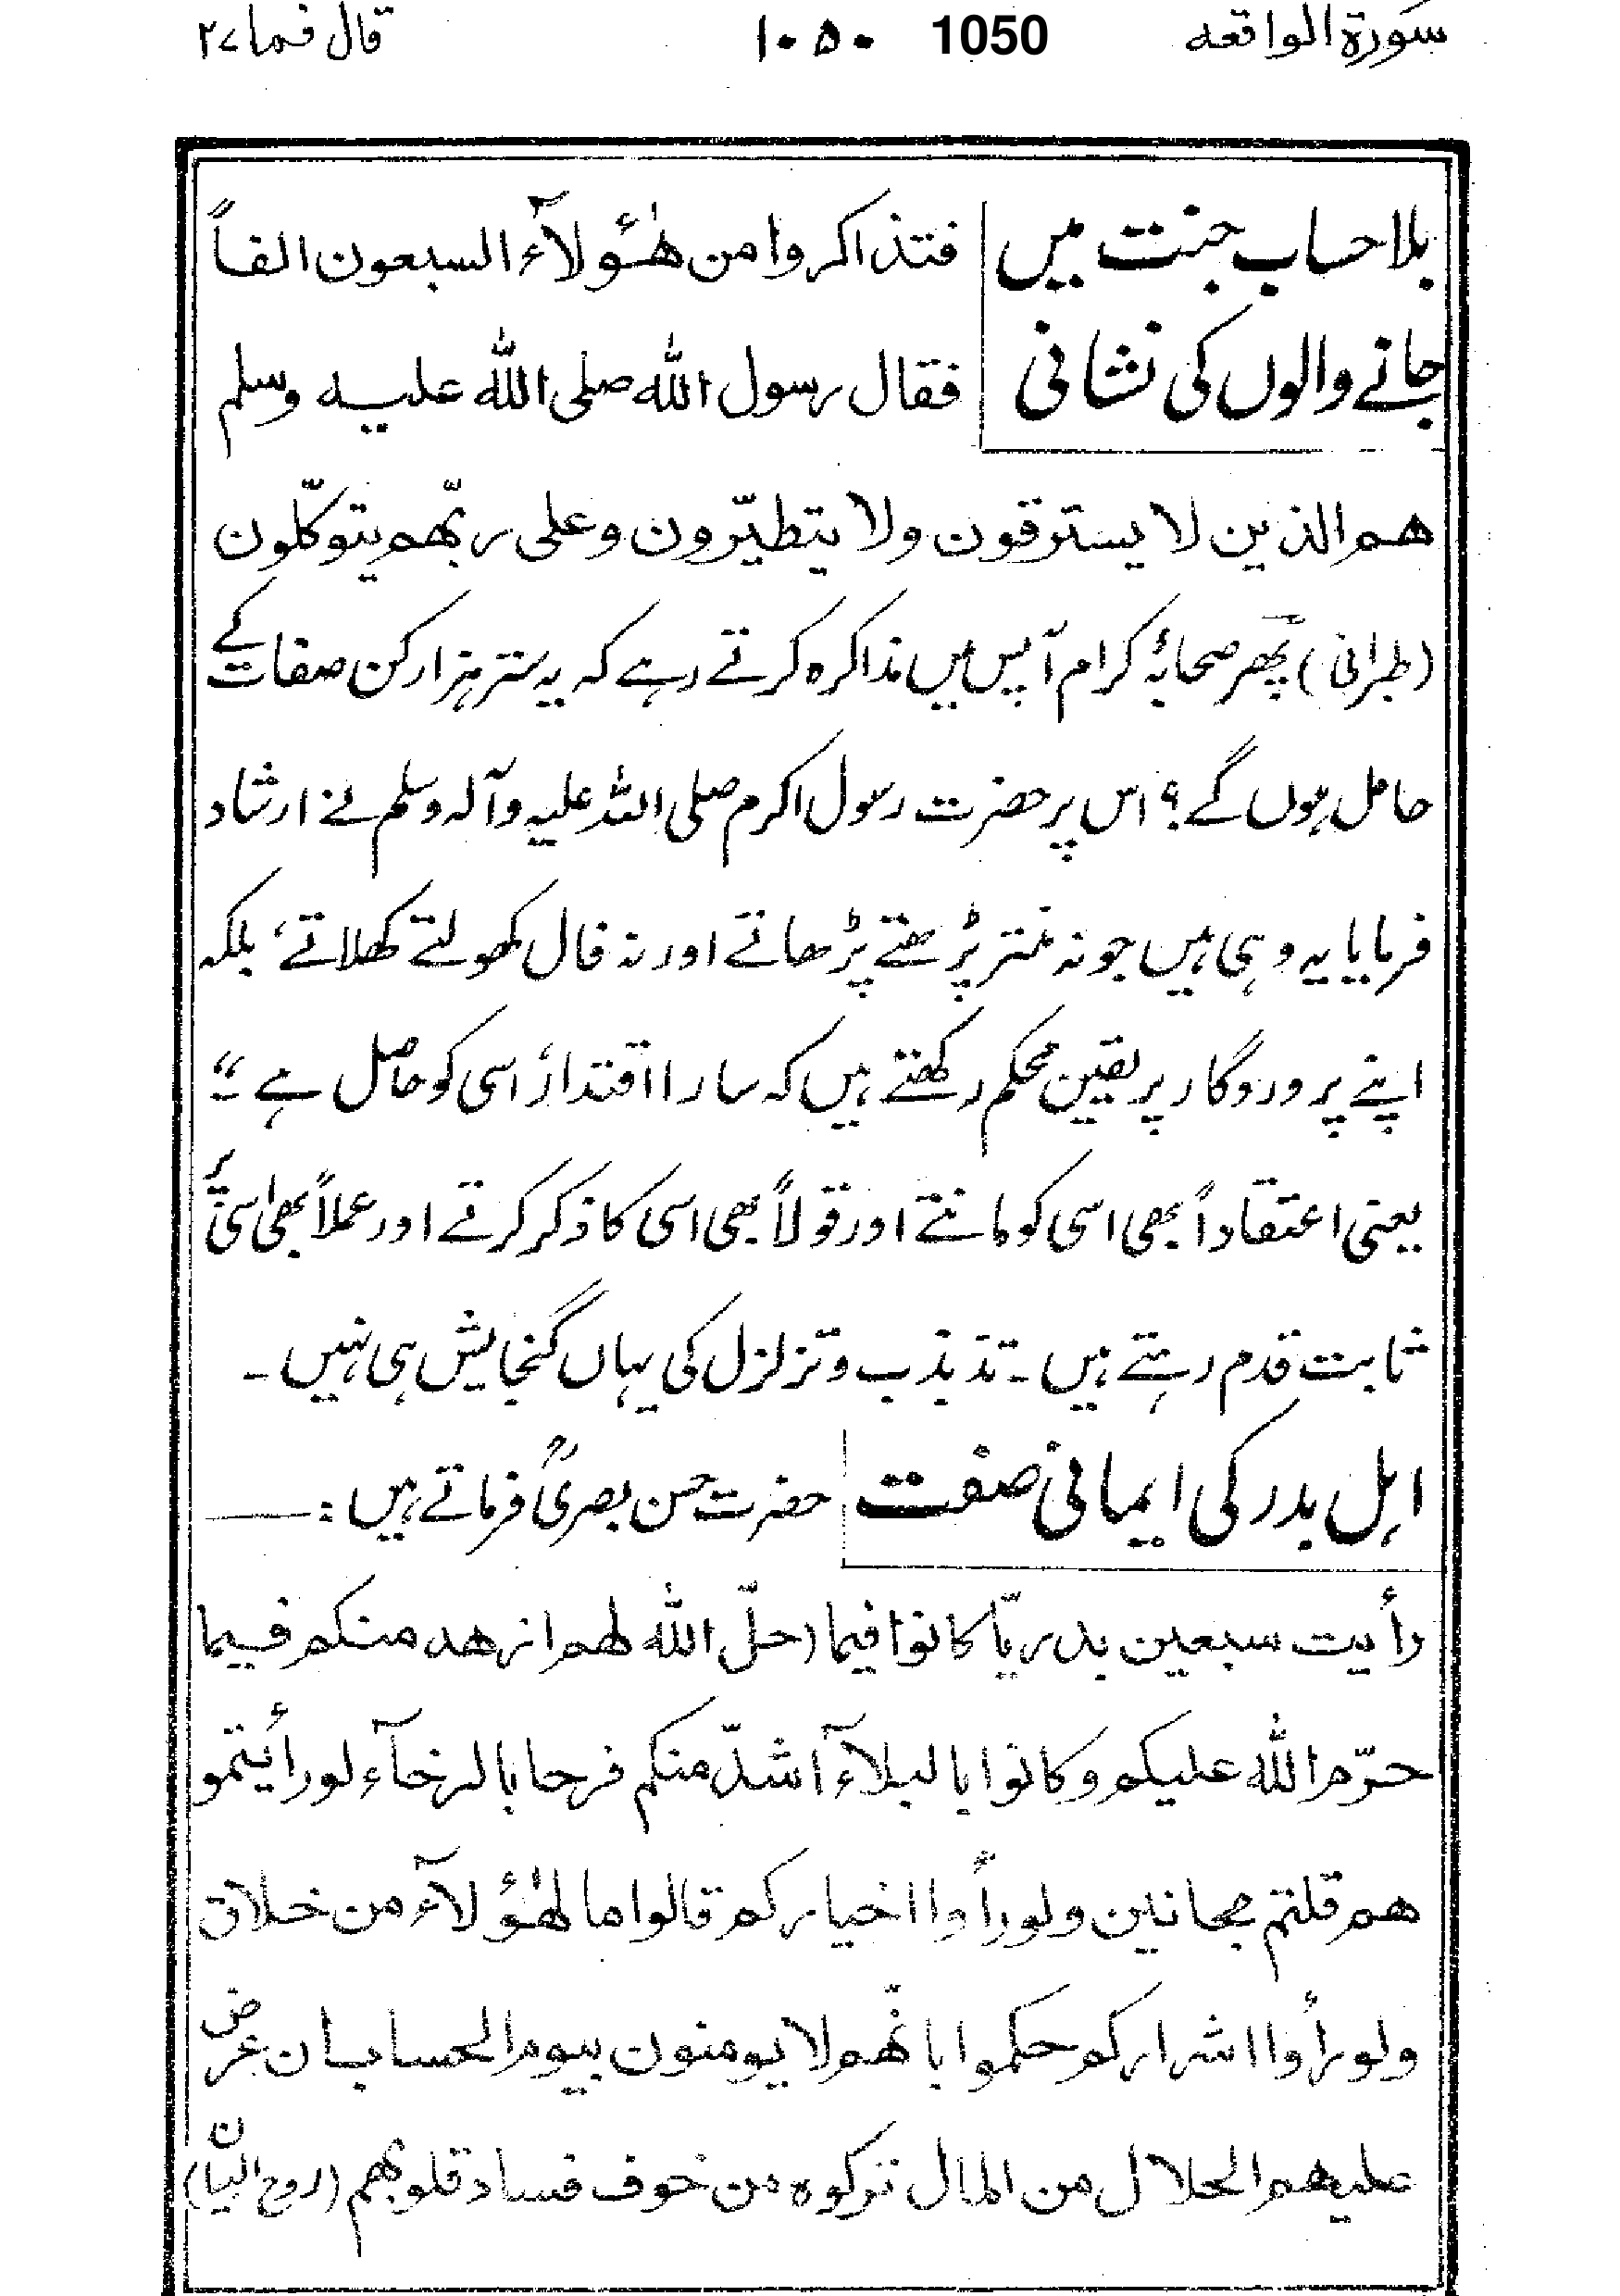 سورۃ الواقعہ 1050 ۱۰۵۰ قال فما ۲۷
بلا حساب جنت میں فتذاکروا من ھٰؤلآء السبعون الفاً
جانے والوں کی نشانی فقال رسول اللہ صلی اللہ علیہ وسلم
ھم الذین لا یسترقون ولا یتطیّرون وعلی ربّھم یتوکّلون
(طبرانی) پھر صحابۂ کرام آپس میں مذاکرہ کرتے رہے کہ یہ ستر ہزار کن صفات کے
حامل ہوں گے؟ اس پر حضرت رسول اکرم صلی اللہ علیہ وآلہ وسلم نے ارشاد
فرمایا یہ وہی ہیں جو نہ منتر پڑھتے پڑھاتے اور نہ فال کھولتے کھلاتے، بلکہ
اپنے پروردگار پر یقین محکم رکھتے ہیں کہ سارا اقتدار اسی کو حاصل ہے ۔“
یعنی اعتقاداً بھی اسی کو مانتے اور قولاً بھی اسی کا ذکر کرتے اور عملاً بھی اسی پر
ثابت قدم رہتے ہیں ۔ تذبذب و تزلزل کی یہاں گنجایش ہی نہیں ۔
اہل بدر کی ایمانی صفت حضرت حسن بصریؒ فرماتے ہیں :ــــــ
رأیت سبعین بدریّا کانوا فیما احلّ اللہ لھم ازھد منکم فیما
حرّم اللہ علیکم وکانوا بالبلآء اشدّ منکم فرحا بالرخآء لو رأیتمو
ھم قلتم مجانین ولو رأوا اخیارکم قالوا ما لھٰؤلآء من خلاق
ولو رأوا اشرارکم حکموا بانّھم لا یومنون بیوم الحساب ان عرض
علیھم الحلال من المال ترکوہ من خوف فساد قلوبھم (روح البیان)